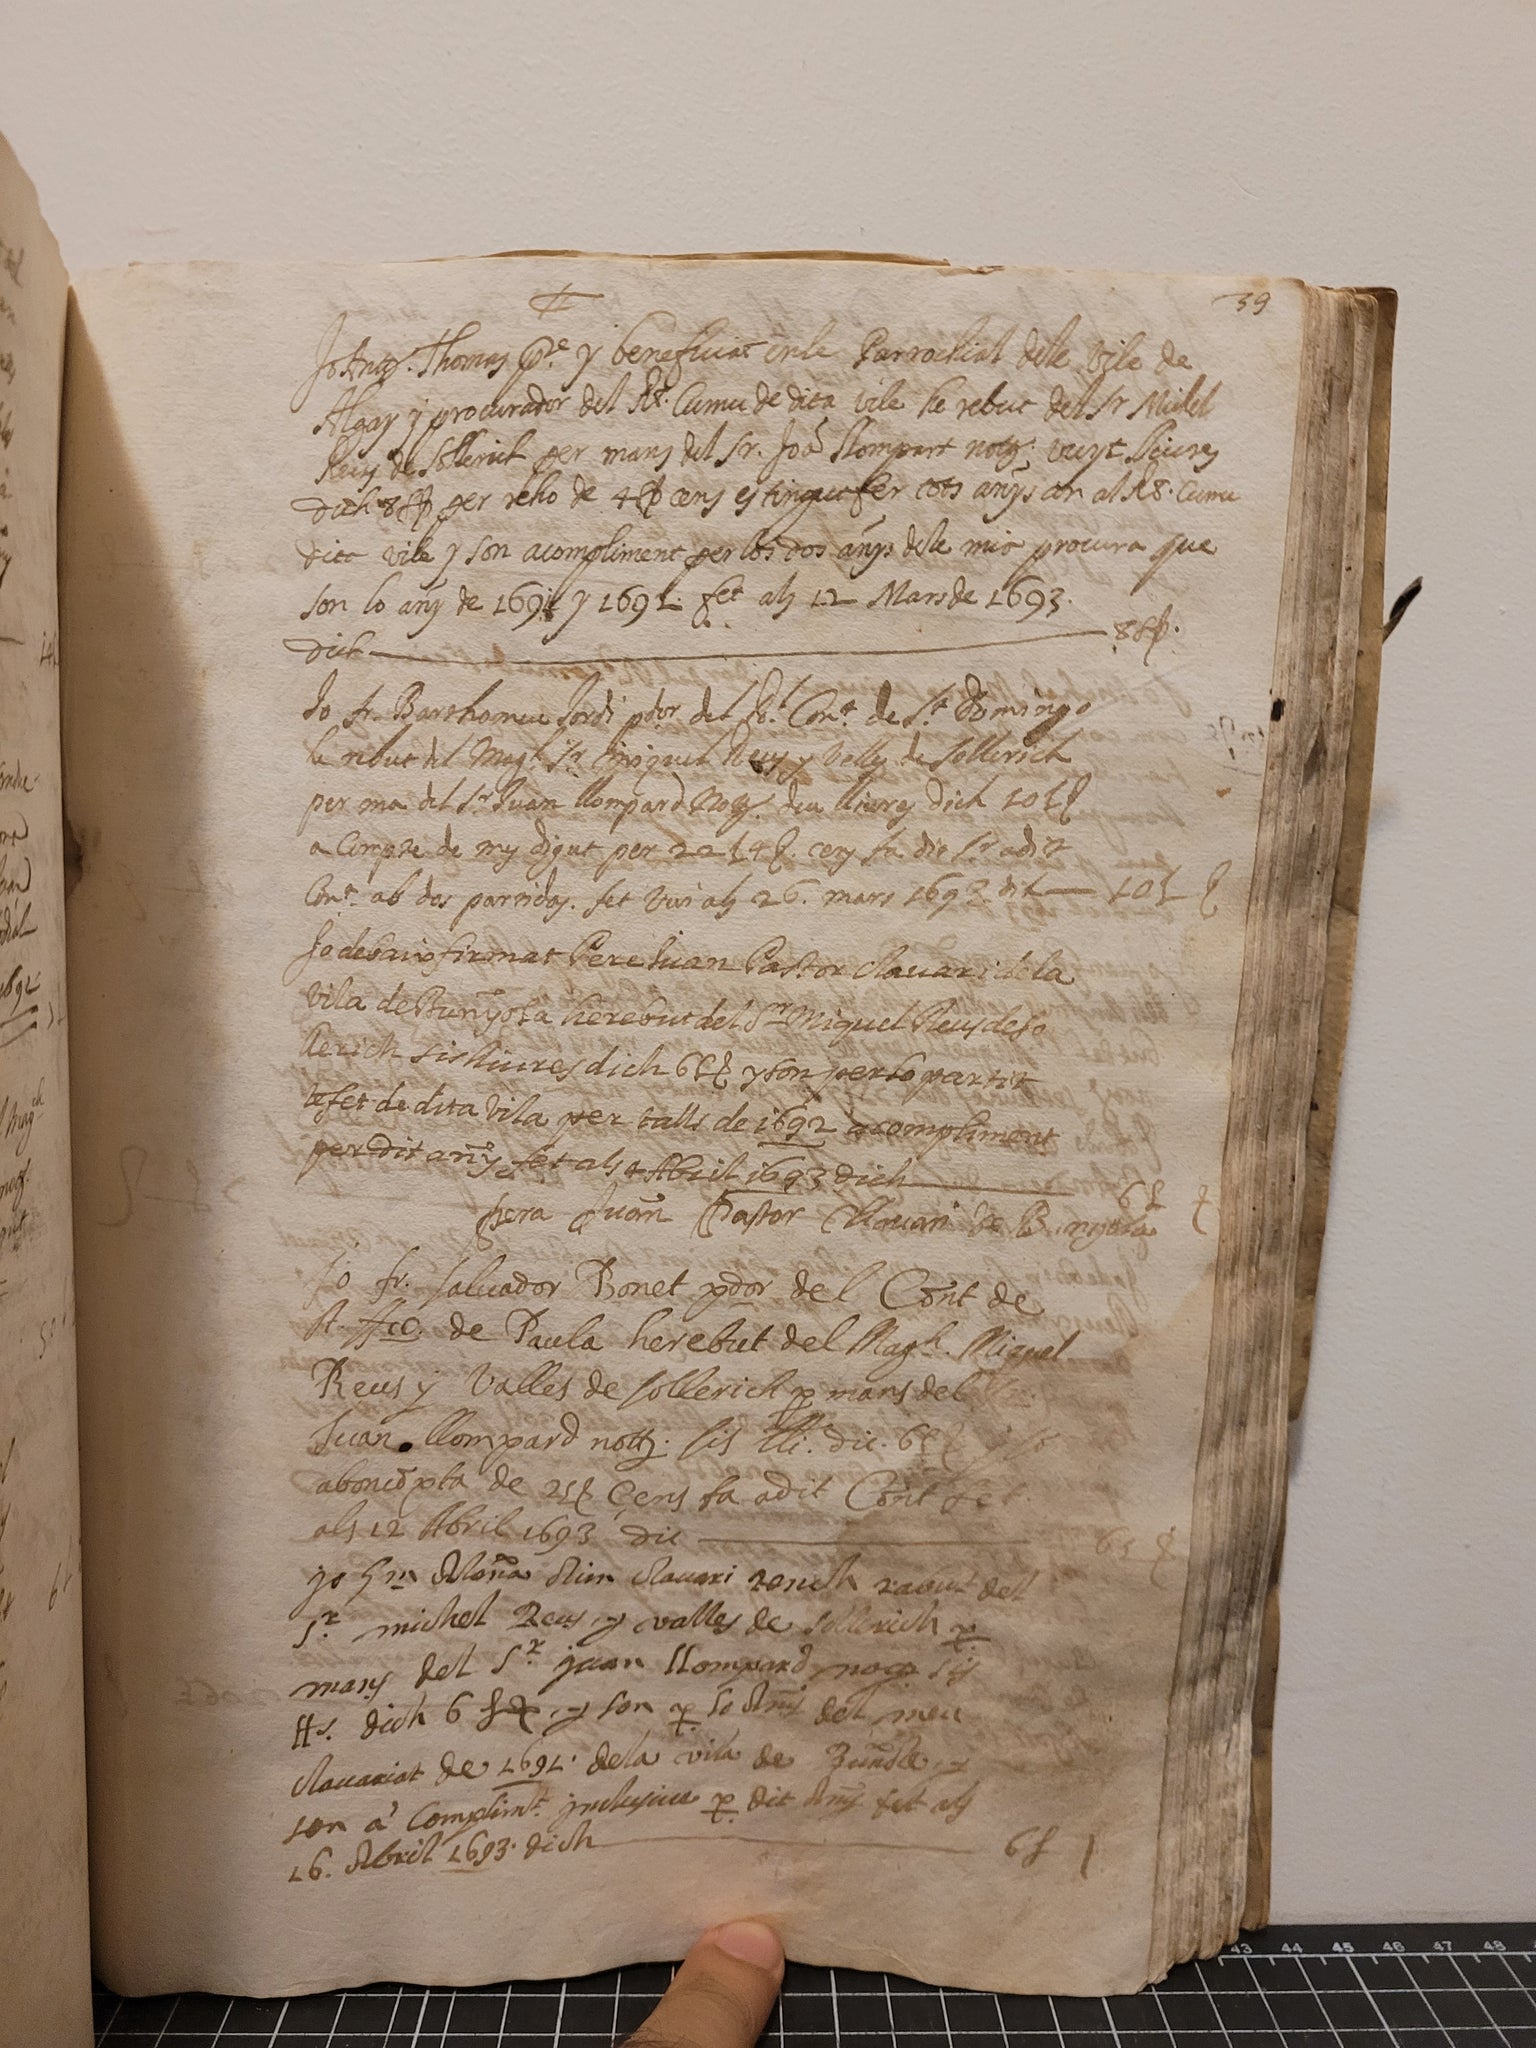 39
Jo Antt. Thomas pre. y beneficiat enle Parrochial dele vile de
Algay y procurador del Rt. Cumu de dita vile he rebut del Sr Michel
Reus de Sollerich per mans del Sr. Joa Llompart nott. vuyt lliures
dich 8 ₤ per reho de 4 ₤ cens tots anys al Rt. Cumu
dite vile y son acompliment per los dos anys dele mia procura que
son lo any de 1691 y 1692. fet als 12 Mars de 1693.
dich 8 ₤.
Jo fr. Barthomeu Jordi pdor del Rl. Cont. de St. Domingo
he rebut del Magh. Sr. Miquel Reus y Velles de Sollerich
per ma del Sr Juan llompard Nott. deu lliures dich 10 ₤
a Compte de mes digut per 22 ₤ 4 cens fa dit Sr adit
Cont. ab dos partidas. fet vui als 26. mars 1693. dit 10 ₤
Jo debaix firmat Pere Juan Pastor Clavari de la
vila de Bunyola he rebut del Sr Miquel Reus de so
llerich sis lliures dich 6 ₤ y son per lo partit
te fet de dita vila per talls de 1692 acompliment
per dit any fet als 4 Abril 1693 dich
6 ₤
pera Juan Pastor Clavari de Bunyola
Jo fr. Salvador Bonet pdor del Cont de
St. ffco. de Paula he rebut del Magh. Miquel
Reus y Valles de Sollerich p mans del
Juan llompard nott. sis lli. dic. 6 ₤ y so
aboncompta de 25 ₤ Cens fa adit Cont fet
als 12 Abril 1693 dic 6 ₤
yo clavari del
Sr. michel Reus y valles de sollerich p.
mans del Sr. juan llompard nott sis
lls. dich 6 ₤ y son p. lo Any del meu
clavariat de 1691. dela vila de
son a Complimt. inclusive p. dit Any fet als
16. Abril 1693. dich 6 ₤